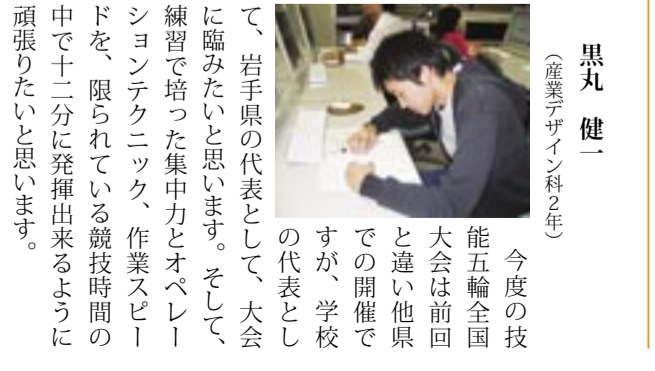 黒丸　健一
（産業デザイン科２年）
　今度の技
能五輪全国
大会は前回
と違い他県
での開催で
すが、学校
の代表とし
て、岩手県の代表として、大会
に臨みたいと思います。そして、
練習で培った集中力とオペレー
ションテクニック、作業スピー
ドを、限られている競技時間の
中で十二分に発揮出来るように
頑張りたいと思います。